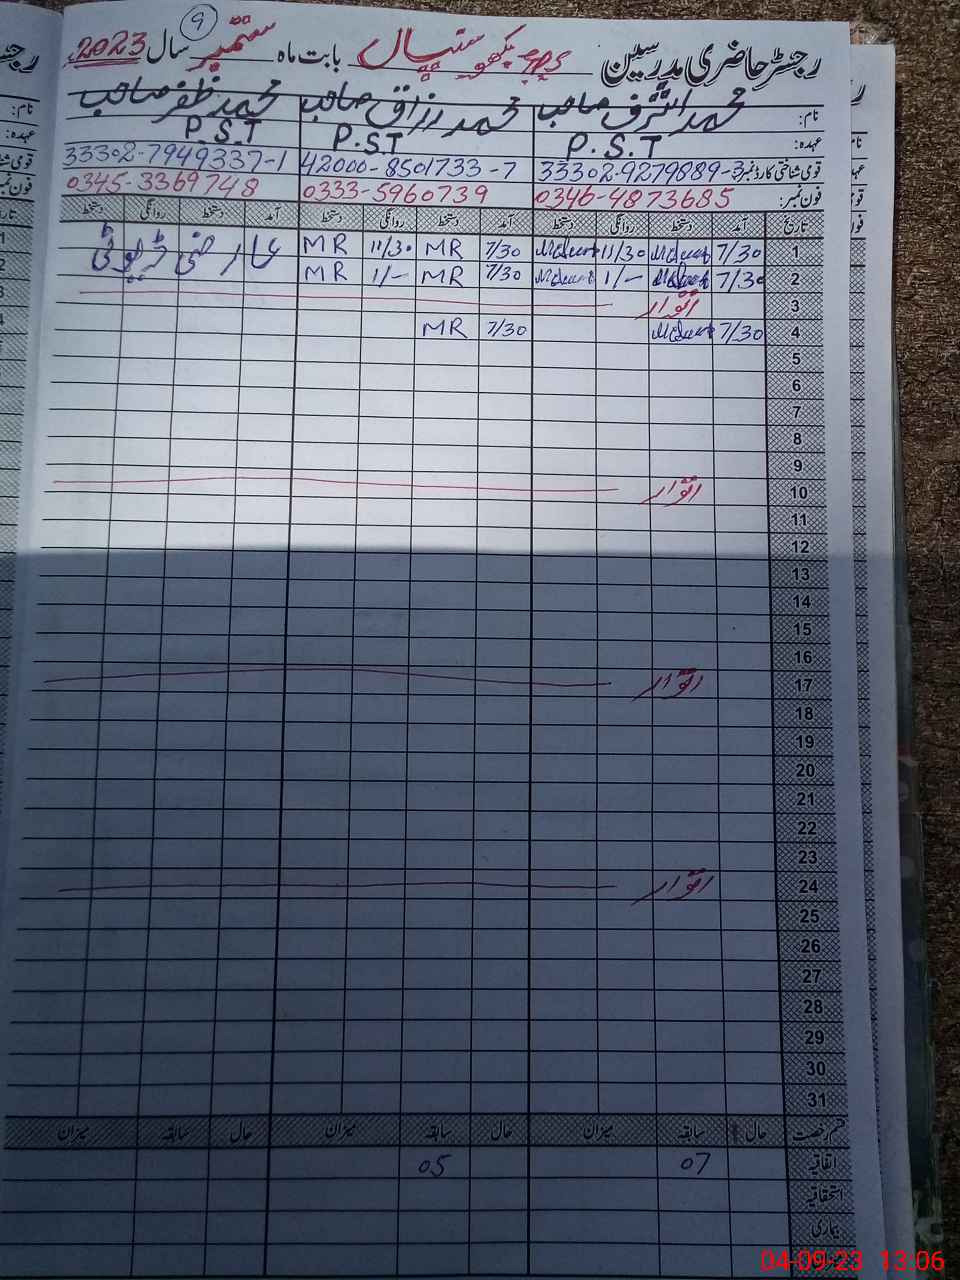 9
رجسٹر حاضری مدرسین بابت ماہ ستمبر سال 2023ء
نام: محمد اشرف صاحب محمد رزاق صاحب محمد ظفر صاحب
عہدہ: P.S.T P.S.T P.S.T
قومی شناختی کارڈ نمبر 33302-9279889-3 42000-8501733-7 33302-7949337-1
فون نمبر: 0346-4873685 0333-5960739 0345-3369748
تاریخ آمد دستخط روانگی دستخط آمد دستخط روانگی دستخط آمد دستخط روانگی دستخط
1 7/30 11/30 7/30 MR 11/30 MR عارضی ڈیوٹی
2 7/30 1/- 7/30 MR 1/- MR
3 اتوار
4 7/30 7/30 MR
5
6
7
8
9
10 اتوار
11
12
13
14
15
16
17 اتوار
18
19
20
21
22
23
24 اتوار
25
26
27
28
29
30
31
قسم رخصت حال سابقہ میزان حال سابقہ میزان حال سابقہ میزان
اتفاقیہ 07 05
استحقاقیہ
بیماری
04-09-23 13:06